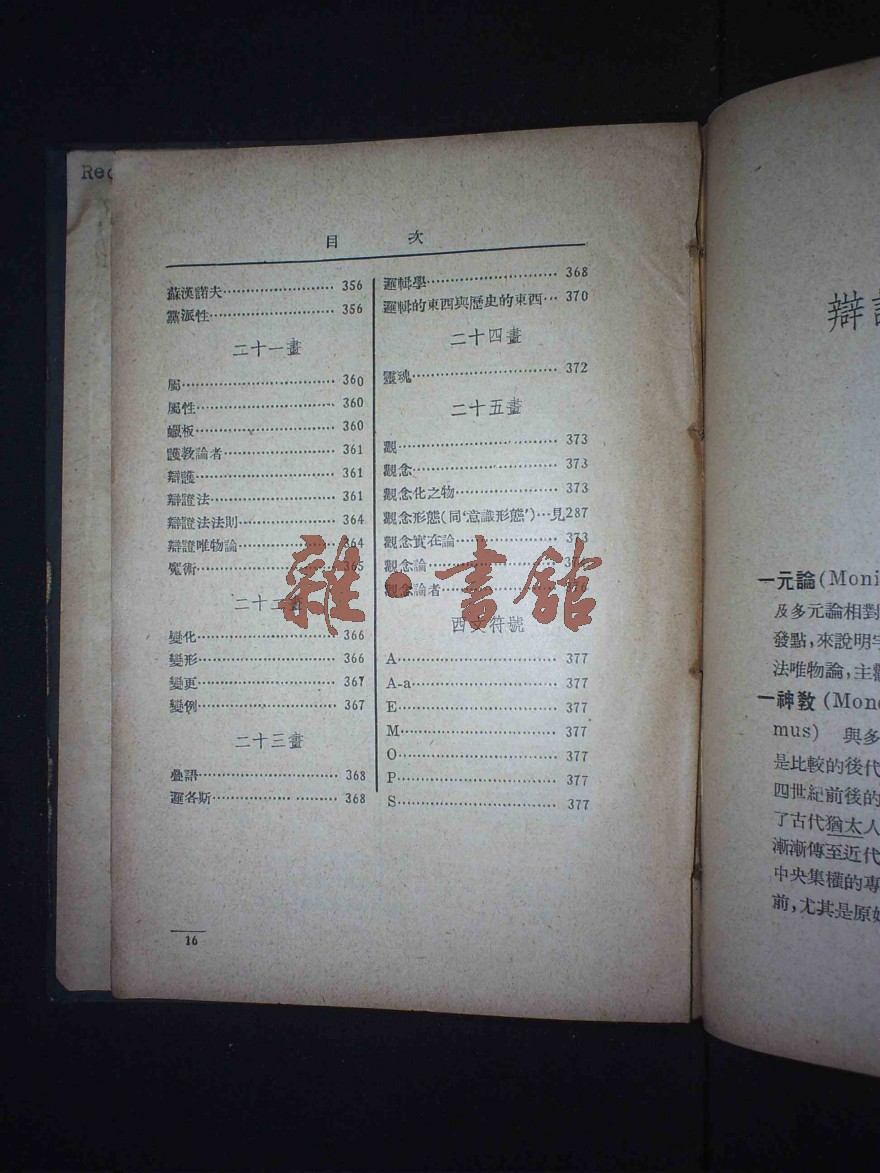 Rec
目 次
蘇漢諾夫 356
黨派性 356
二十一畫
屬 360
屬性 360
蠟板 360
護教論者 361
辯護 361
辯證法 361
辯證法法則 364
辯證唯物論 364
魔術 365
二十二畫
變化 366
變形 366
變更 367
變例 367
二十三畫
疊語 368
邏各斯 368
邏輯學 368
邏輯的東西與歷史的東西 370
二十四畫
靈魂 372
二十五畫
觀 373
觀念 373
觀念化之物 373
觀念形態(同‘意識形態’)…見287
觀念實在論 373
觀念論
觀念論者
西文符號
A 377
A-a 377
E 377
M 377
O 377
P 377
S 377
16
雜·書館
辯
一元論(Moni
及多元論相對
發點,來說明宇
法唯物論,主觀
一神教(Mono
mus) 與多
是比較的後代
四世紀前後的
了古代猶太人
漸漸傳至近代
中央集權的專
前,尤其是原始